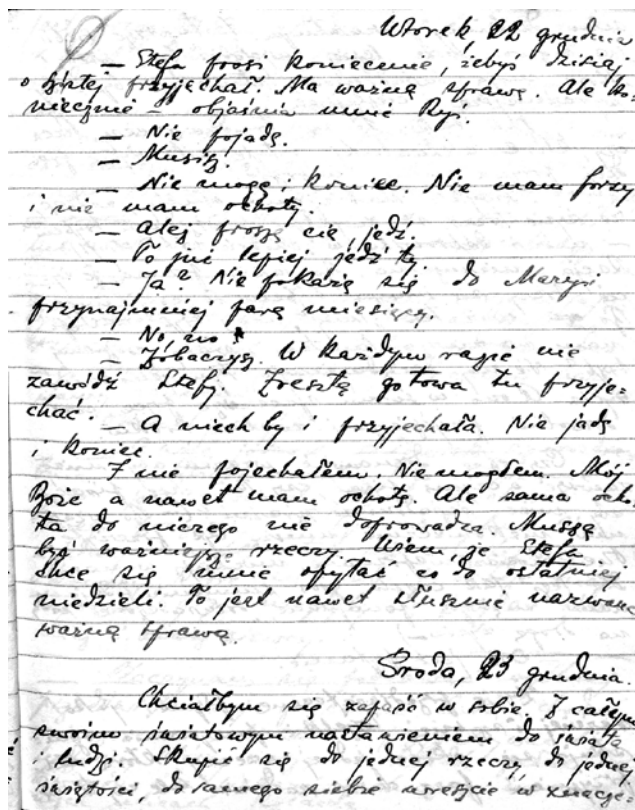 Wtorek, 22 grudnia
— Stefa prosi koniecznie, żebyś dzisiaj
o piątej przyjechał. Ma ważną sprawę. Ale ko=
niecznie — objaśnia mnie Ryś.
— Nie pojadę.
— Musisz.
— Nie mogę i koniec. Nie mam forsy
i nie mam ochoty.
— Ależ proszę cię jedź.
— To już lepiej jedź ty.
— Ja? Nie pokażę się do Marysi
przynajmniej parę miesięcy.
— No, no
— Zobaczysz. W każdym razie nie
zawódź Stefy. Zresztą gotowa tu przyje=
chać.
— A niech by i przyjechała. Nie jadę
i koniec.
I nie pojechałem. Nie mogłem. Mój
Boże a nawet mam ochotę. Ale sama ocho
ta do niczego nie doprowadza. Muszą
być ważniejsze rzeczy. Wiem, że Stefa
chce się mnie spytać co do ostatniej
niedzieli. To jest nawet słusznie nazwane
ważną sprawą.
Środa, 23 grudnia.
Chciałbym się zapaść w sobie. Z całym
swoim światowym nastawieniem do świata
i ludzi. Skupić się do jednej rzeczy, do jednej
świętości, do samego siebie wreszcie w znacze=